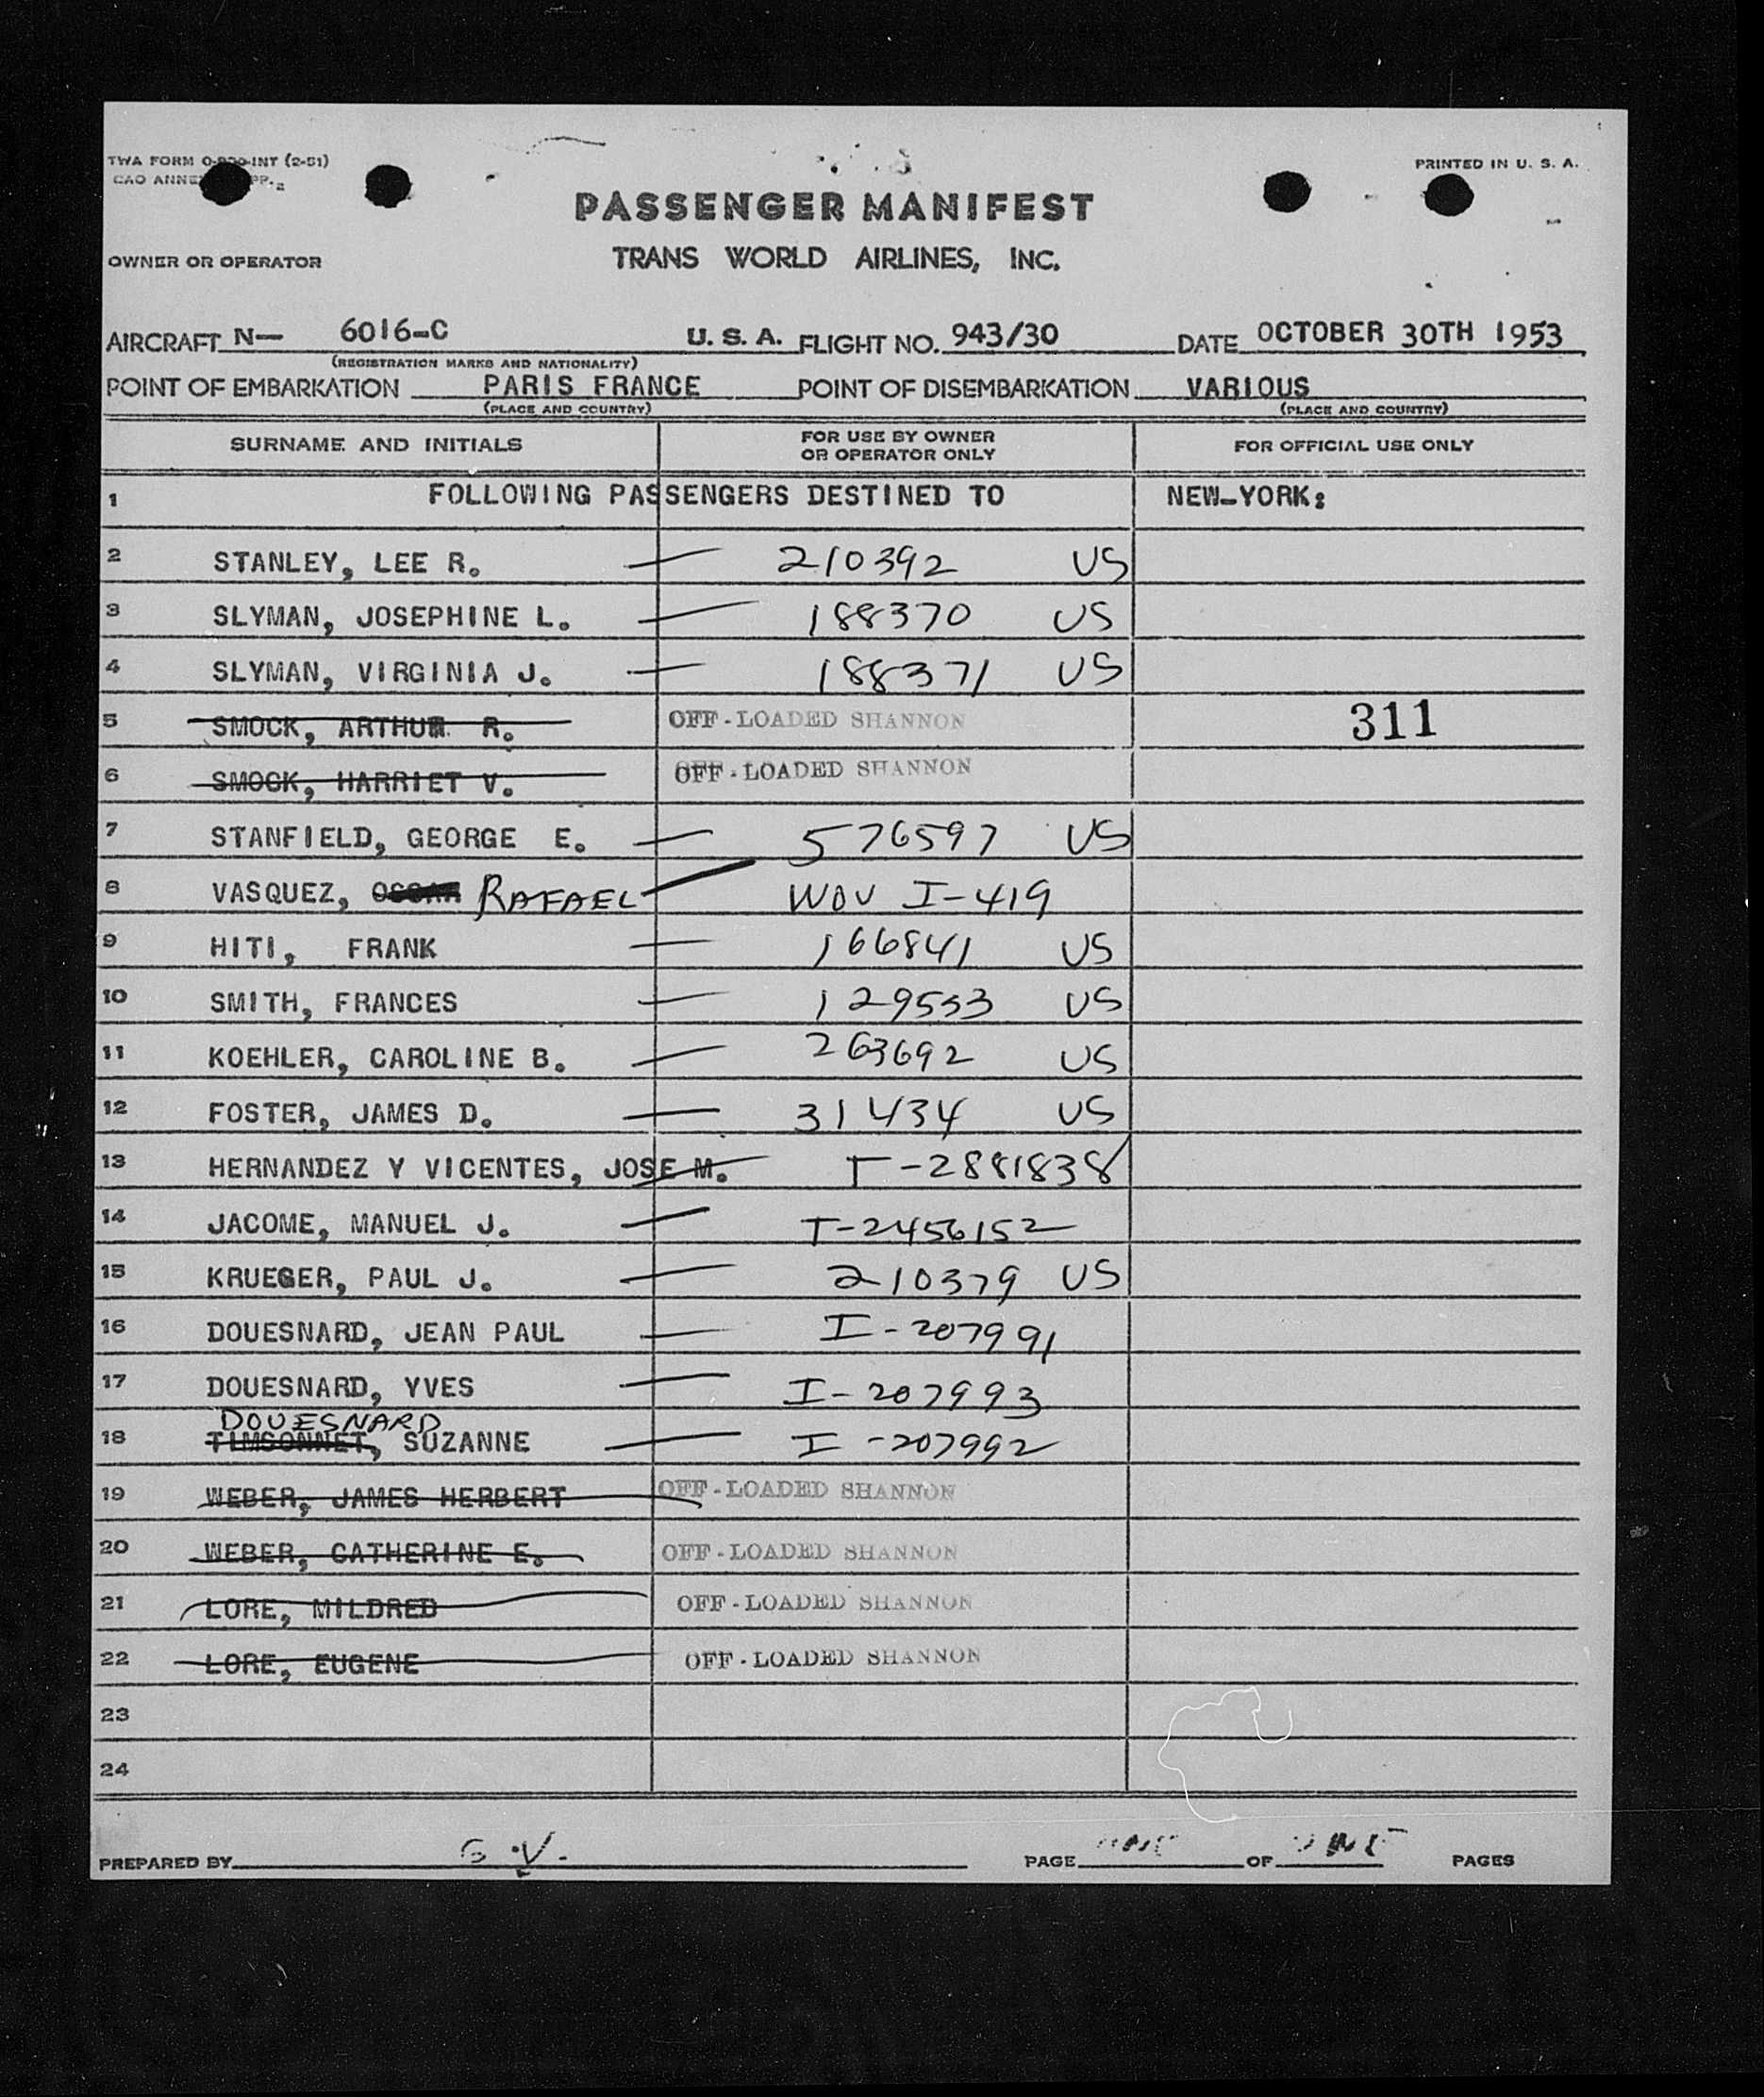 TWA FORM INT (2-51)
PRINTED IN U. S. A.
PASSENGER MANIFEST
OWNER OR OPERATOR TRANS WORLD AIRLINES, INC.
AIRCRAFT N— 6016-C U. S. A. FLIGHT NO. 943/30 DATE OCTOBER 30TH 1953
(REGISTRATION MARKS AND NATIONALITY)
POINT OF EMBARKATION PARIS FRANCE POINT OF DISEMBARKATION VARIOUS
(PLACE AND COUNTRY) (PLACE AND COUNTRY)
SURNAME AND INITIALS FOR USE BY OWNER OR OPERATOR ONLY FOR OFFICIAL USE ONLY
1 FOLLOWING PASSENGERS DESTINED TO NEW-YORK:
2 STANLEY, LEE R. — 210392 US
3 SLYMAN, JOSEPHINE L. — 188370 US
4 SLYMAN, VIRGINIA J. — 188371 US
5 SMOCK, ARTHUR R. OFF-LOADED SHANNON 311
6 SMOCK, HARRIET V. OFF-LOADED SHANNON
7 STANFIELD, GEORGE E. — 576597 US
8 VASQUEZ, OSCAR RAFAEL — WOV I-419
9 HITI, FRANK — 166841 US
10 SMITH, FRANCES — 129533 US
11 KOEHLER, CAROLINE B. — 263692 US
12 FOSTER, JAMES D. — 31434 US
13 HERNANDEZ Y VICENTES, JOSE M. T-2881838
14 JACOME, MANUEL J. — T-2456152
15 KRUEGER, PAUL J. — 210379 US
16 DOUESNARD, JEAN PAUL — I-207991
17 DOUESNARD, YVES — I-207993
DOUESNARD
18 TIMSONNET, SUZANNE — I-207992
19 WEBER, JAMES HERBERT OFF-LOADED SHANNON
20 WEBER, CATHERINE E. OFF-LOADED SHANNON
21 LORE, MILDRED OFF-LOADED SHANNON
22 LORE, EUGENE OFF-LOADED SHANNON
23
24
PREPARED BY G.V. PAGE OF PAGES